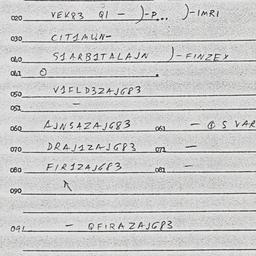 020 VEK83 QI - )-P... )-IMRI
030 CIT1AUN-
040 S1ARB1TALAJN )-FINZEX
041 O .
050 V1FLD3ZAJG83
051 -
060 AJNSAZAJG83 061 - @ S VAR
070 DRAJ1ZAJG83 071 -
080 FIR1ZAJG83 081 -
090
091 - QFIRAZAJG83